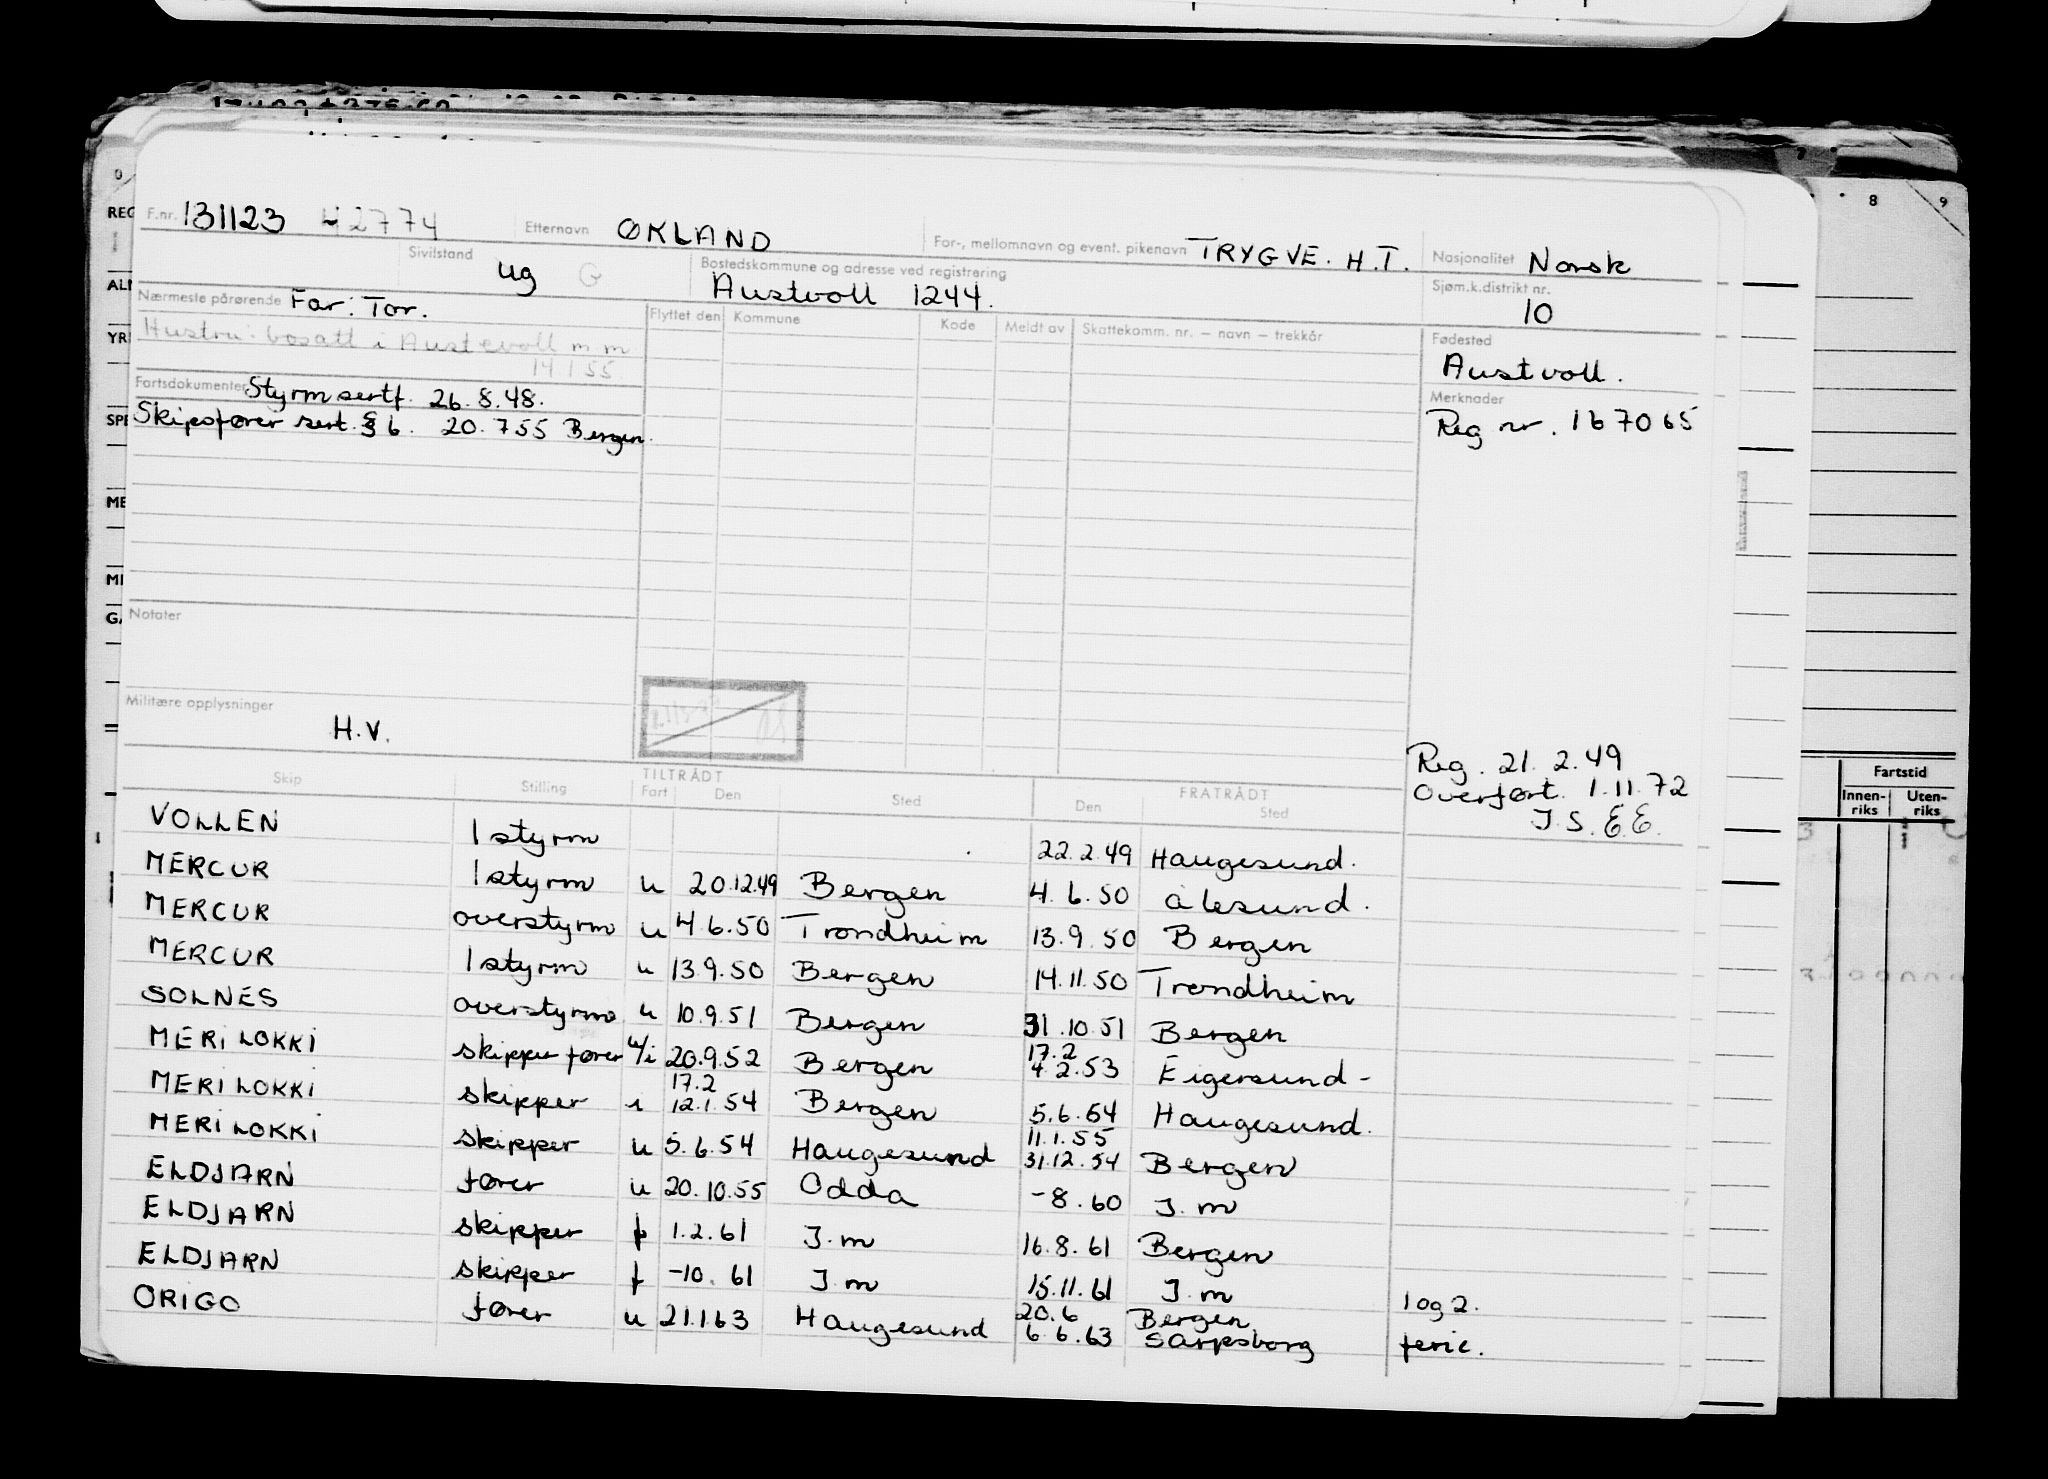 F.nr. 131123 42774 Etternavn ØKLAND For-, mellomnavn og event. pikenavn TRYGVE. H.T. Nasjonalitet Norsk
Sivilstand ug G Bostedskommune og adresse ved registrering Austvoll 1244. Sjøm.k.distrikt nr. 10
Nærmeste pårørende Far: Tor. Flyttet den Kommune Kode Meldt av Skattekomm. nr. – navn – trekkår Fødested
Hustru: bosatt i Austevoll m m Austvoll.
14 1 55
Fartsdokumenter Styrm sertf. 26.8.48. Merknader
Skipsfører sert. § 6. 20.755 Bergen. Reg nr. 167065
Notater
Militære opplysninger H.V.
Reg. 21.2.49
Overført. 1.11.72
J.S.E.E.
Skip Stilling TILTRÅDT Fart Den Sted FRATRÅDT Den Sted
VOLLEN 1styrm 22.2.49 Haugesund.
MERCUR 1styrm u 20.12.49 Bergen 4.6.50 Ålesund.
MERCUR overstyrm u 4.6.50 Trondheim 13.9.50 Bergen
MERCUR 1styrm u 13.9.50 Bergen 14.11.50 Trondheim
SOLNES overstyrm u 10.9.51 Bergen 31.10.51 Bergen
17.2
MERILOKKI skipper fører u/i 20.9.52 Bergen 4.2.53 Eigersund-
17.2
MERILOKKI skipper i 12.1.54 Bergen 5.6.54 Haugesund.
11.1.55
MERILOKKI skipper u 5.6.54 Haugesund 31.12.54 Bergen
ELDJARN fører u 20.10.55 Odda -8.60 J.m
ELDJARN skipper f 1.2.61 J.m 16.8.61 Bergen
ELDJARN skipper f -10.61 J.m 15.11.61 J.m 1 og 2.
20.6 Bergen
ORIGO fører u 21.1.63 Haugesund 6.6.63 Sarpsborg ferie.
REG
SPE
ME
8
9
Fartstid
Innen-
riks
Uten-
riks